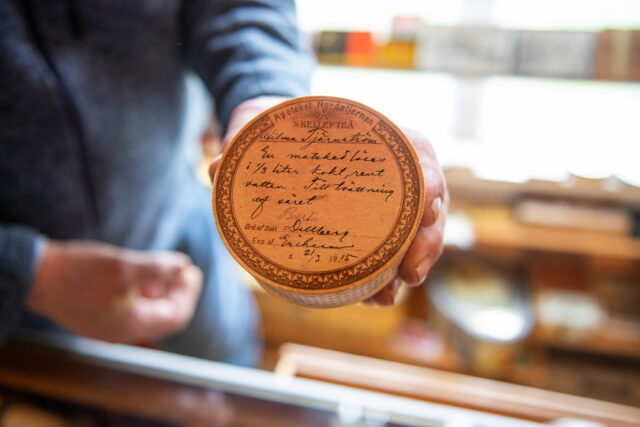 Apoteket Nordstjernan
SKELLEFTEÅ
Wilma Tjärnström
En matsked löses
i 1/3 liter kokt, rent
vatten. Till tvättning
af såret
Ord. af Dokt. Dillberg
Exp. af Ericksson
d. 21/3 1915